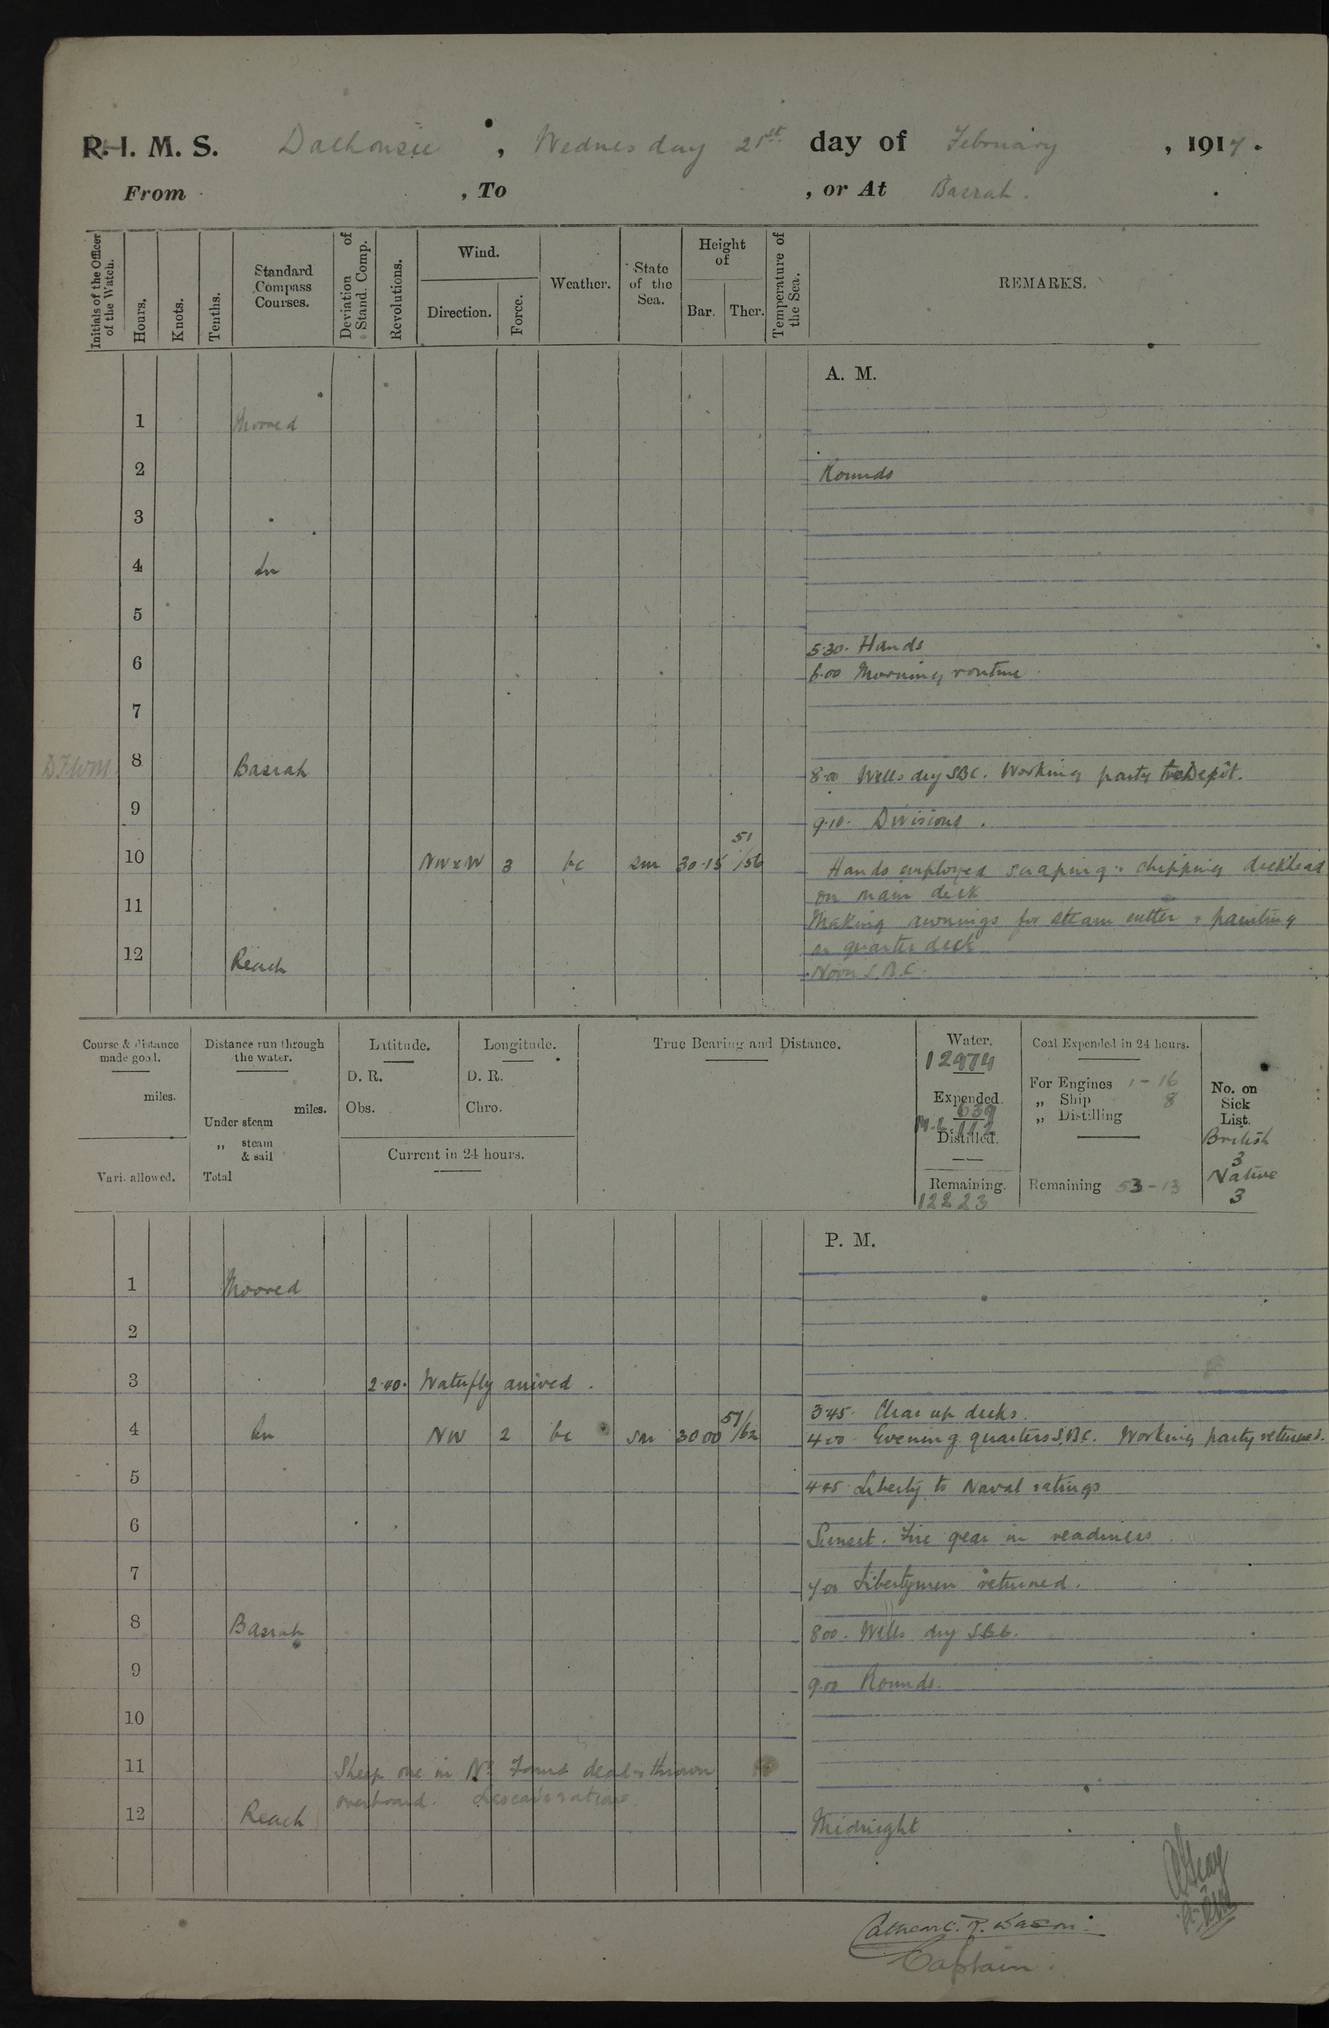 R. I. M. S. Dalhousie, Wednesday 21st day of February, 1917.
From , To , or At Basrah.
Initials of the Officer of the Watch.
Hours.
Knots.
Tenths.
Standard Compass Courses.
Deviation of Stand. Comp.
Revolutions.
Wind.
Direction.
Force.
Weather.
State of the Sea.
Height of
Bar.
Ther.
Temperature of the Sea.
REMARKS.
A. M.
1 Moored
2 Rounds
3
4 In
5
5.30. Hands
6 6.00 Morning routine
7
8 Basrah 8.00 Wells dry SBC. Working party to Depôt.
9 9.10. Divisions.
51
10 NWxW 3 bc sm 30.15 /56 Hands employed scraping & chipping deckhead
on main deck
11 Making awnings for steam cutter & painting
on quarter deck
12 Reach Noon S.B.C.
Course & distance made good.
miles.
Vari. allowed.
Distance run through the water.
miles.
Under steam
„ steam & sail
Total
Latitude.
D. R.
Obs.
Longitude.
D. R.
Chro.
Current in 24 hours.
True Bearing and Distance.
Water.
12974
Expended.
639
112
Distilled.
Remaining.
12223
Coal Expended in 24 hours.
For Engines 1-16
„ Ship 8
„ Distilling
Remaining 53-13
No. on Sick List.
British
3
Native
3
P. M.
1 Moored
2
3 2.40. Waterfly arrived.
3.45. Clear up decks.
4 In NW 2 bc sm 30 00 /62 4.00 Evening quarters S.B.C. Working party returned.
5 Liberty to Naval ratings
6 Sunset. Fire gear in readiness
7 7.00 Libertymen returned.
8 Basrah 8.00. Wells dry S.B.C.
9 9.00 Rounds.
10
11 Sheep one in No. Found dead & thrown
overboard.
12 Reach Midnight
Captain.